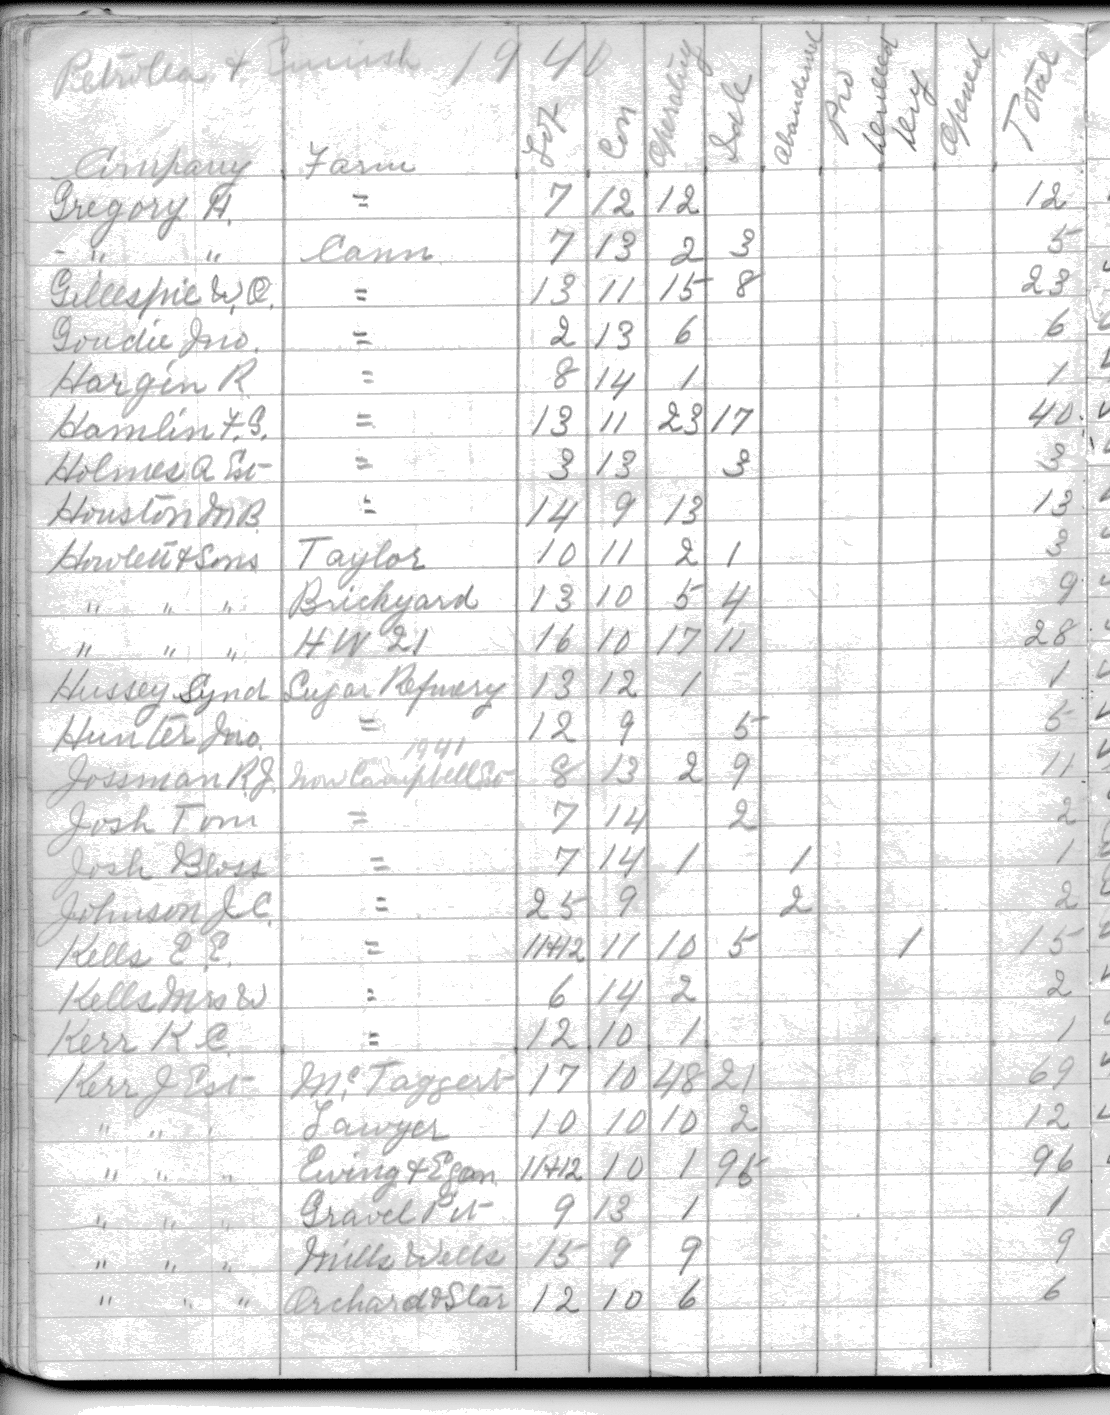 Petrolea & Enniskill 1940
Company Farm Lot Con Operating Idle Abandoned Pro Drilled Dry Opened Total
Gregory H. = 7 12 12 12
" " Cann 7 13 2 3 5
Gillespie W.O. = 13 11 15 8 23
Goudie Jno. = 2 13 6 6
Hargin R = 8 14 1 1
Hamlin F.G. = 13 11 23 17 40
Holmes A Est = 3 13 3 3
Houston M B. = 14 9 13 13
Howlett & Sons Taylor 10 11 2 1 3
" " " Brickyard 13 10 5 4 9
" " " HW 21 16 10 17 11 28
Hussey Synd Sugar Refinery 13 12 1 1
Hunter Jno. = 12 9 5 5
1941
Jossman R.J. now Campbell Est 8 13 2 9 11
Josh Tom = 7 14 2 2
Josh Bloss = 7 14 1 1 1
Johnson J.C. = 25 9 2 2
Kells E.E. = 11+12 11 10 5 1 15
Kells Mrs W = 6 14 2 2
Kerr K C. = 12 10 1 1
Kerr J Est Mc Taggert 17 10 48 21 69
" " " Lawyer 10 10 10 2 12
" " " Ewing & Egan 11+12 10 1 95 96
" " " Gravel Pit 9 13 1 1
" " " Mills Wells 15 9 9 9
" " " Orchard & Star 12 10 6 6